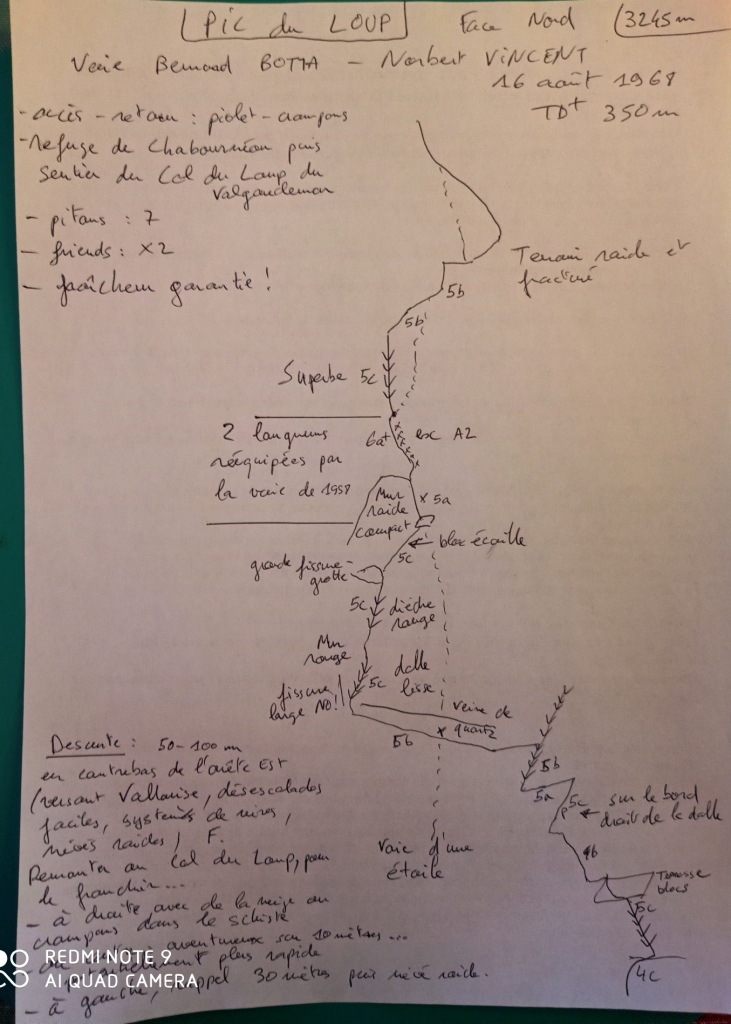 PIC du LOUP Face Nord 3245m
Voie Bernard BOTTA - Norbert VINCENT
16 août 1968
TD+ 350m
- accès - retour : piolet - crampons
- refuge de Chabournéou puis
sentier du Col du Loup du
Valgaudemar
- pitons : 7
- friends : x2
- fraîcheur garantie !
Terrain raide et
fracturé
5b
5b
Superbe 5c
6a+ exc A2
2 longueurs
rééquipées par
la voie de
Mur
raide
compact
x 5a
bloc écaille
5c
grande fissure -
grotte
5c dièdre
rouge
Mur
rouge
5c dalle
lisse
fissure
large NO!
veine de
quartz
5b
5b
5a
5c sur le bord
droit de la dalle
4b
Terrasse
blocs
5c
4c
Voie d'une
étoile
Descente : 50-100 m
en contrebas de l'arête Est
(versant Vallouise, désescalades
faciles, systèmes de vires,
névés raides) F.
Remonter au Col du Loup, pour
le franchir...
- à droite avec de la neige ou
crampons dans le schiste
aventureux sur 10 mètres...
plus rapide
- à gauche, rappel 30 mètres puis névé raide.
REDMI NOTE 9
AI QUAD CAMERA